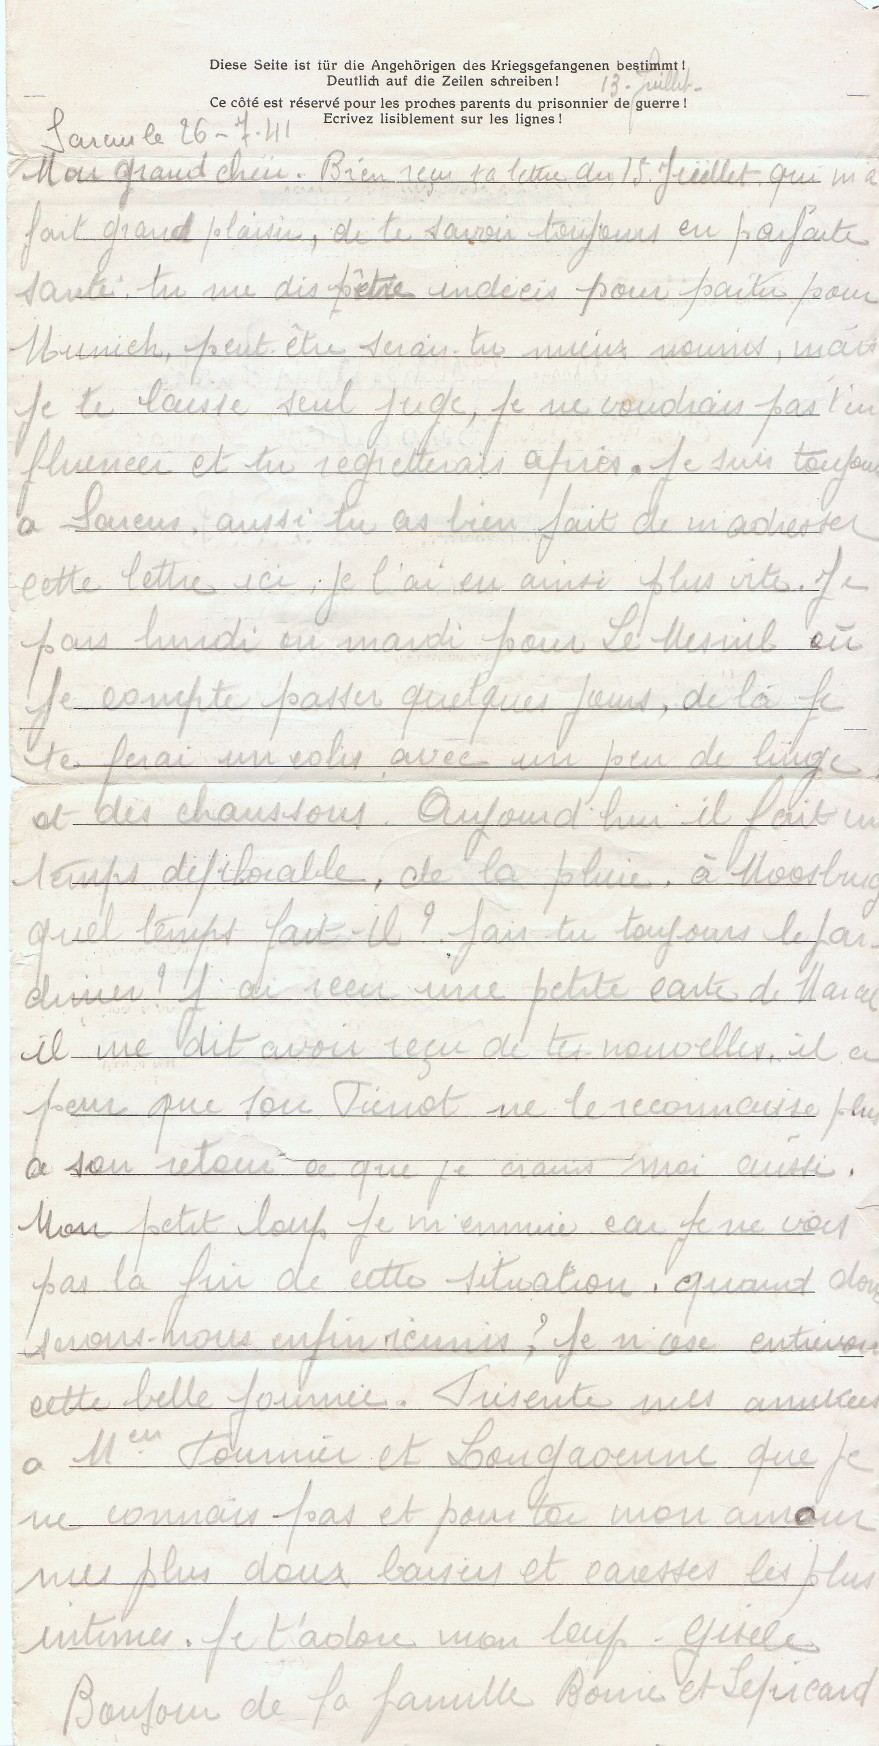 Diese Seite ist für die Angehörigen des Kriegsgefangenen bestimmt!
Deutlich auf die Zeilen schreiben!
13 - Juillet -
Ce côté est réservé pour les proches parents du prisonnier de guerre!
Ecrivez lisiblement sur les lignes!
le 26-7-41
Mon grand chéri. Bien reçu ta lettre du 15 Juillet qui m'a
fait grand plaisir, de te savoir toujours en parfaite
santé. tu me dis être indécis pour partir pour
Munich, peut être serais-tu mieux nourris, mais
je te laisse seul juge, je ne voudrais pas t'in
fluencer et tu regretterais après. Je suis toujours
a Sarcus, aussi tu as bien fait de m'adresser
cette lettre ici, je l'ai eu ainsi plus vite. Je
pars lundi ou mardi pour Le Mesnil où
je compte passer quelques jours, de là je
te ferai un colis avec un peu de linge
et des chaussons. Aujourd'hui il fait un
temps déplorable, de la pluie, à Moosburg
quel temps fait-il? fais tu toujours le jar-
dinier? J'ai reçu une petite carte de Marcel
il me dit avoir reçu de tes nouvelles, il a
peur que son ne le reconnaisse plus
a son retour ce que je crains moi aussi.
Mon petit loup je m'ennuie car je ne vois
pas la fin de cette situation, quand donc
serons-nous enfin réunis? Je n'ose entrevoir
cette belle journée. Présente mes amitiés
a Mrs Tournier et que je
ne connais pas et pour toi mon amour
mes plus doux baisers et caresses les plus
intimes. Je t'adore mon loup - Gisèle
Bonjour de la famille et Lepicard